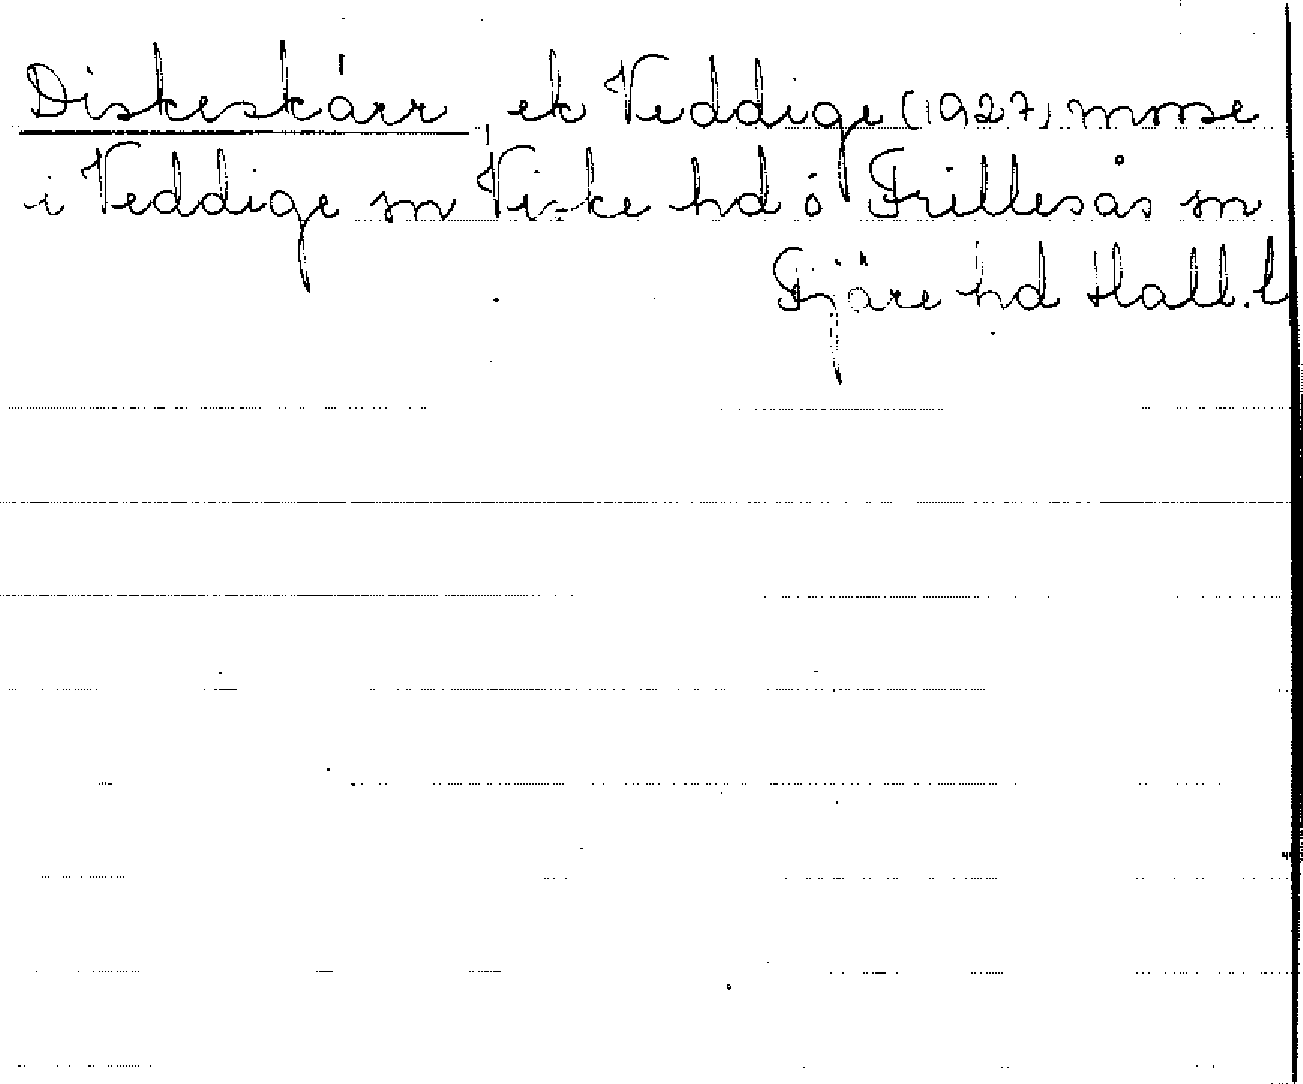 Diskeskärr, ek Veddige (1927) mosse
i Veddige sn Viske hd o Frillesås sn
Fjäre hd Hall. l